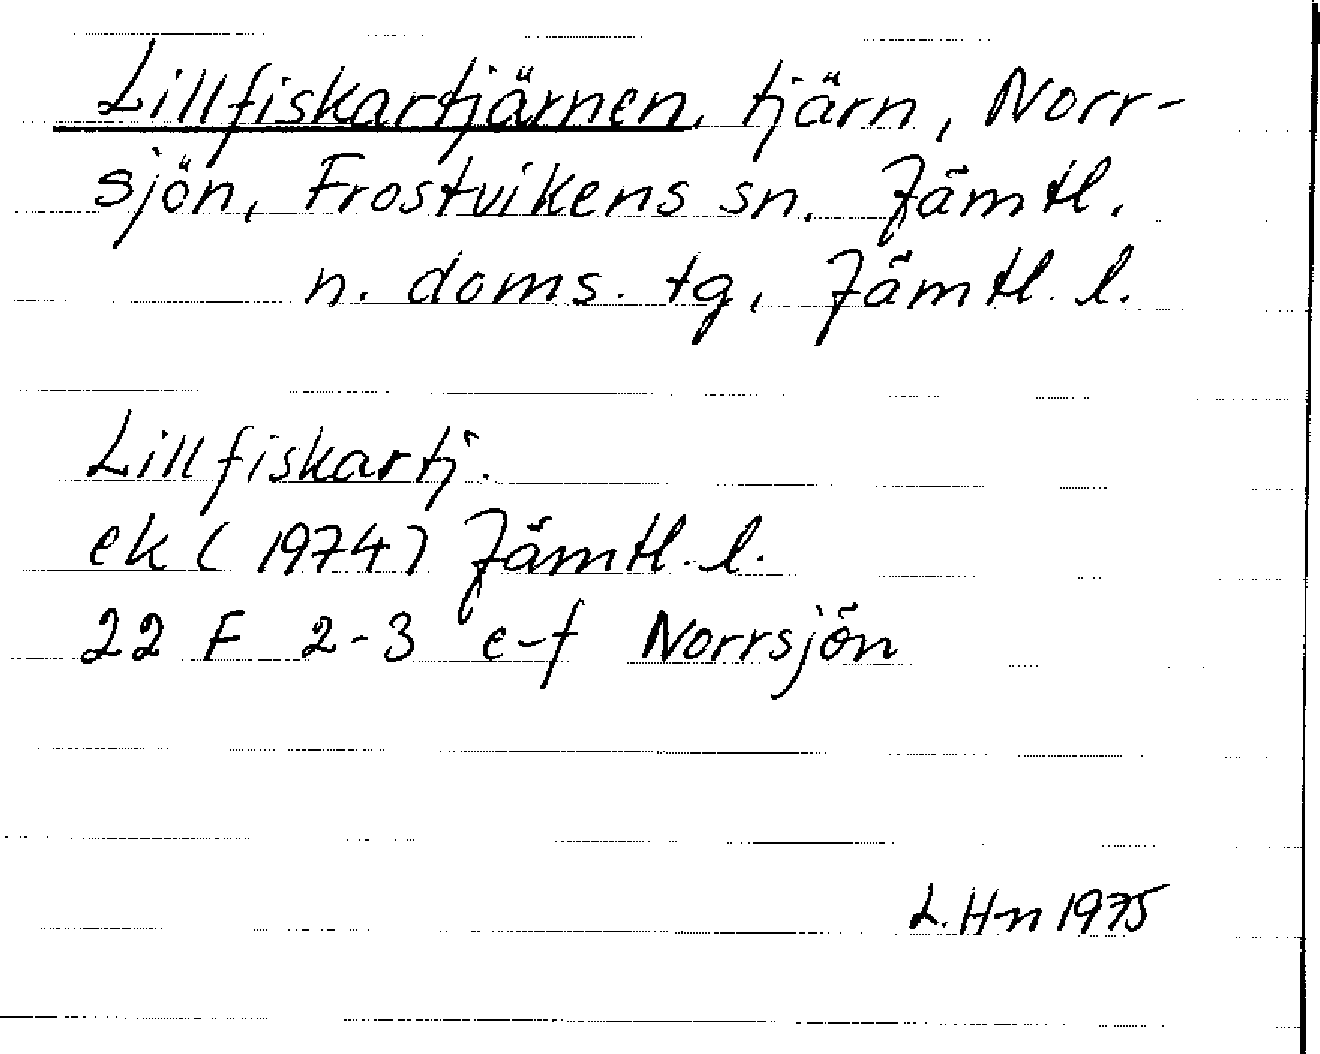 Lillfiskartjärnen, tjärn, Norr-
sjön, Frostvikens sn. Jämtl.
n. doms. tg, Jämtl. l.
Lillfiskartj.
ek (1974) Jämtl. l.
22 F 2-3 e-f Norrsjön
L. Hn 1975